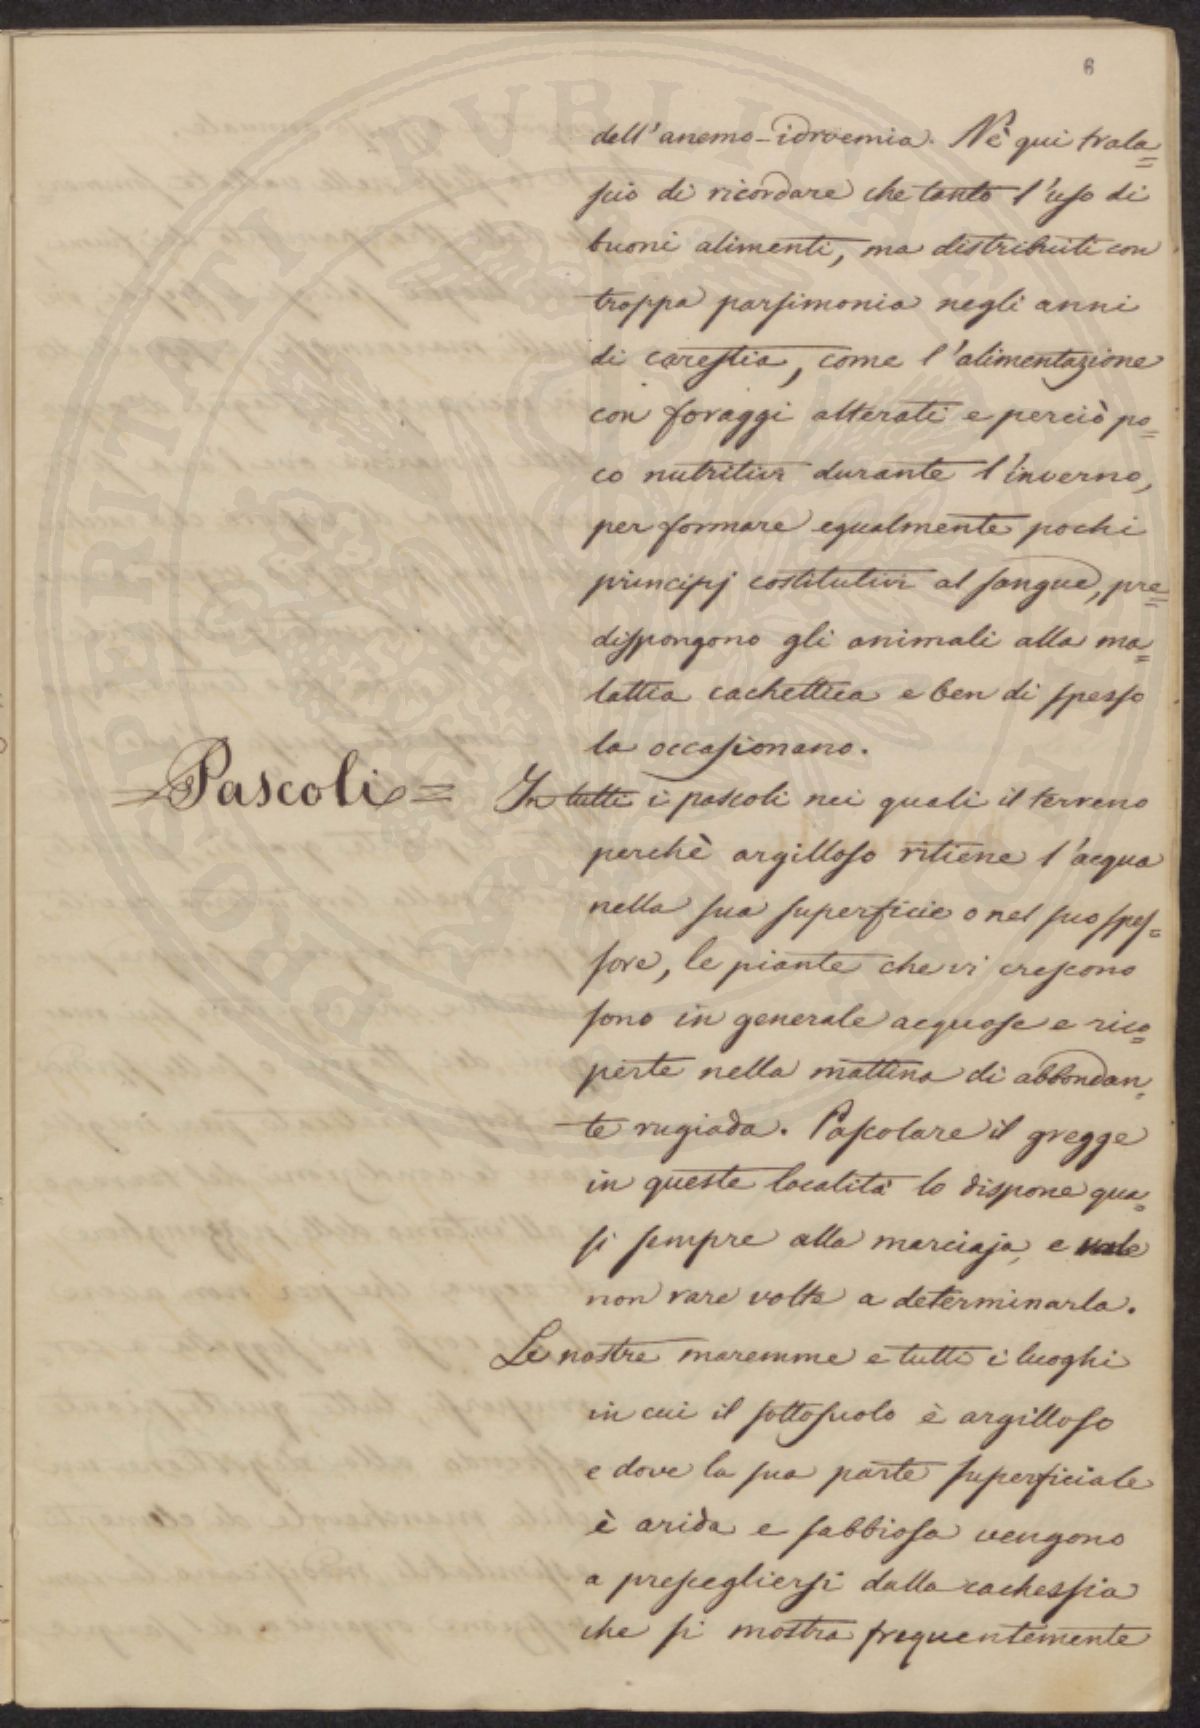 6
dell'anemo-idroemia. Nè qui trala=
scio di ricordare che tanto l'uso di
buoni alimenti, ma distribuiti con
troppa parsimonia negli anni
di carestia, come l'alimentazione
con foraggi alterati e perciò po=
co nutritivi durante l'inverno,
per formare egualmente pochi
principj costitutivi al sangue, pre=
dispongono gli animali alla ma=
lattia cachettica e ben di spesso
la occasionano.
=Pascoli=
In tutti i pascoli nei quali il terreno
perchè argilloso ritiene l'acqua
nella sua superficie o nel suo spes=
sore, le piante che vi crescono
sono in generale acquose e rico=
perte nella mattina di abbondan=
te rugiada. Pascolare il gregge
in queste località lo dispone qua=
si sempre alla marciaja, e vale
non rare volte a determinarla.
Le nostre maremme e tutti i luoghi
in cui il sottosuolo è argilloso
e dove la sua parte superficiale
è arida e sabbiosa vengono
a prescegliersi dalla cachessia
che si mostra frequentemente
PROPERITATI PUBLICAE